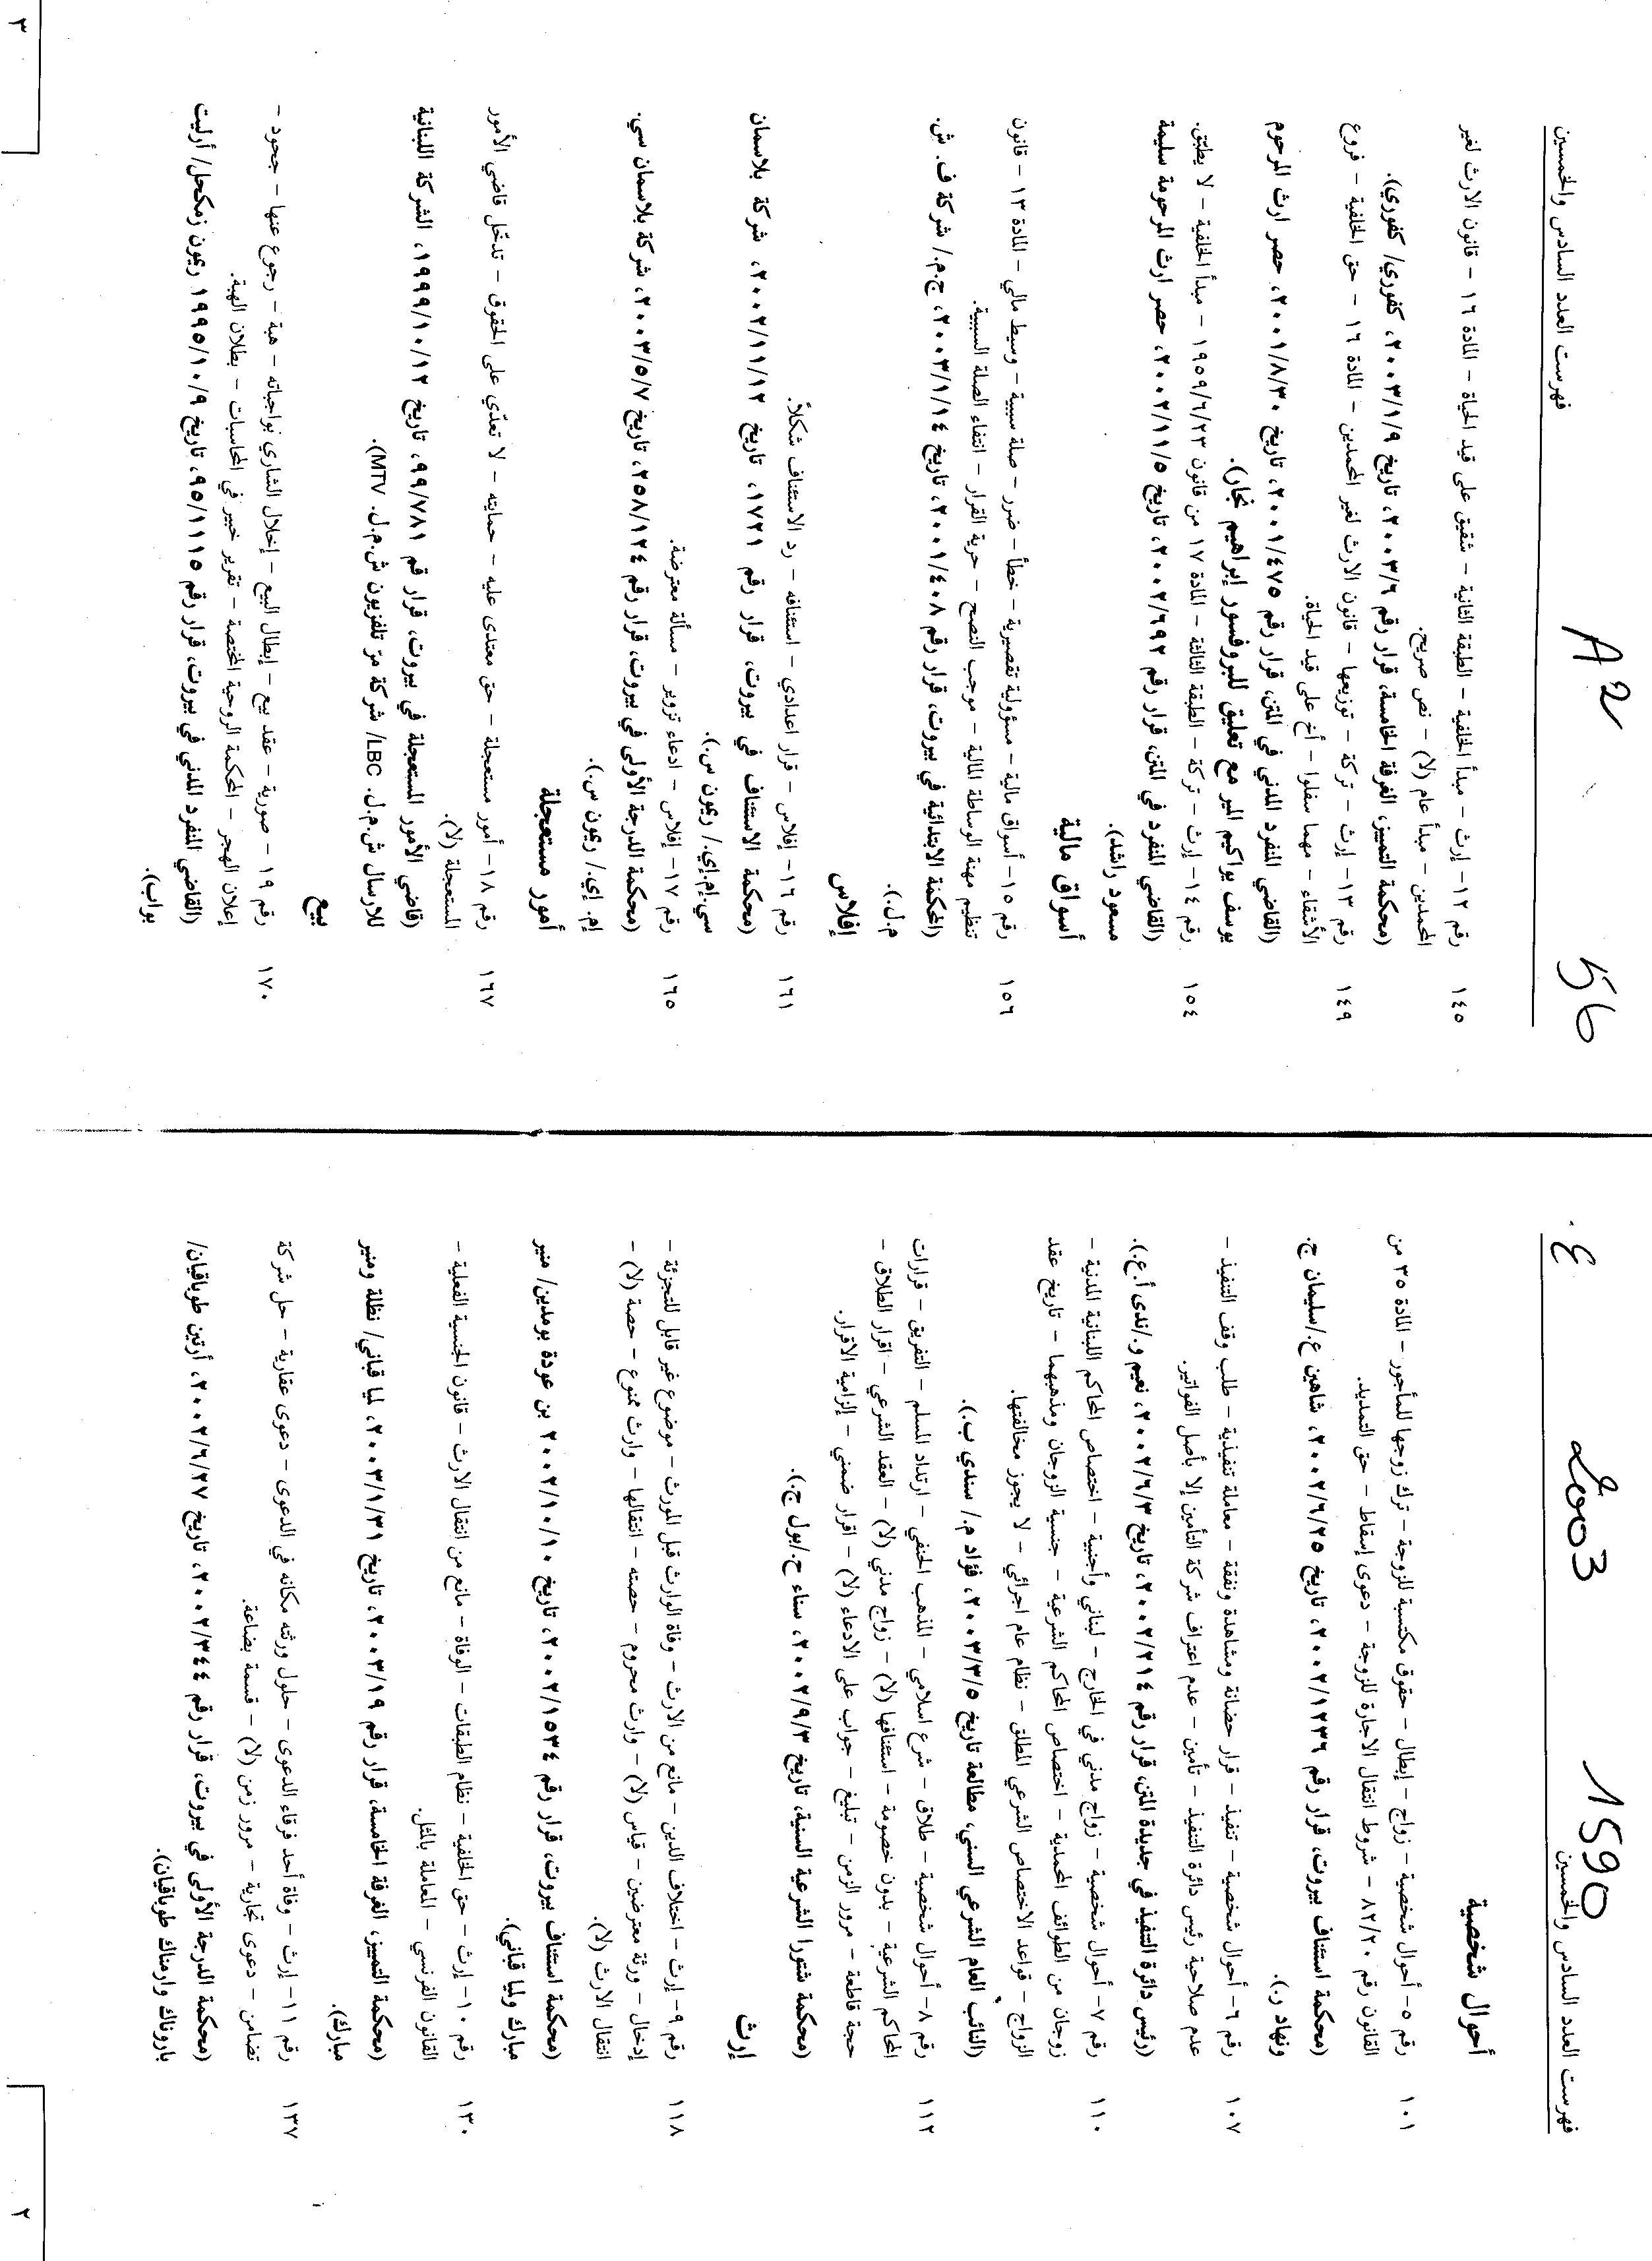 فهرست العدد السادس والخمسين
1590
2003
E.
أحوال شخصية
رقم ٥- أحوال شخصية - زواج - إبطال - حقوق مكتسبة للزوجة - ترك زوجها للمأجور - المادة ٣٥ من ١٠١
القانون رقم ٨٢/٢٠ - شروط انتقال الاجارة للزوجة - دعوى إسقاط - حق التمديد.
(محكمة استئناف بيروت، قرار رقم ٢٠٠٢/١٢٣٦، تاريخ ٢٠٠٢/٦/٢٥، شاهين ع./سليمان ج.
ونهاد ر.).
رقم ٦- أحوال شخصية - تنفيذ - قرار حضانة ومشاهدة ونفقة - معاملة تنفيذية - طلب وقف التنفيذ - ١٠٧
عدم صلاحية رئيس دائرة التنفيذ - تأمين - عدم اعتراف شركة التأمين إلا بأصل الفواتير.
(رئيس دائرة التنفيذ في جديدة المتن، قرار رقم ٢٠٠٢/٢١٤، تاريخ ٢٠٠٢/٦/٣، نعيم و./ندى أ.ع.).
رقم ٧- أحوال شخصية - زواج مدني في الخارج - لبناني وأجنبية - اختصاص المحاكم اللبنانية المدنية - ١١٠
زوجان من الطوائف المحمدية - اختصاص المحاكم الشرعية - جنسية الزوجان ومذهبهما - تاريخ عقد
الزواج - قواعد الاختصاص الشرعي المطلق - نظام عام اجرائي - لا يجوز مخالفتها.
(النائب العام الشرعي السني، مطالعة تاريخ ٢٠٠٣/٣/٥، فؤاد م./ سندي ب.).
رقم ٨- أحوال شخصية - طلاق - شرع اسلامي - المذهب الحنفي - ارتداد المسلم - التفريق - قرارات ١١٢
المحاكم الشرعية - بدون خصومة - استئنافها (لا) - زواج مدني (لا) - العقد الشرعي - اقرار الطلاق -
حجة قاطعة - مرور الزمن - تبليغ - جواب على الادعاء (لا) - اقرار ضمني - إلزامية الاقرار.
(محكمة شتورا الشرعية السنية، تاريخ ٢٠٠٢/٩/٣، سناء ح./بول ج.).
إرث
رقم ٩- إرث - اختلاف الدين - مانع من الارث - وفاة الوارث قبل المورث - موضوع غير قابل للتجزئة - ١١٨
إدخال - ورثة معترضين - قياس (لا) - وارث محروم - حصته - انتقالها - وارث ممنوع - حصة (لا) -
انتقال الارث (لا).
(محكمة استئناف بيروت، قرار رقم ٢٠٠٢/١٥٣٤، تاريخ ٢٠٠٢/١٠/١٠ بن عودة بومدين/ منير
مبارك وليا قباني).
رقم ١٠- إرث - حق الخلفية - نظام الطبقات - الوفاة - مانع من انتقال الارث - قانون الجنسية الفعلية - ١٣٠
القانون الفرنسي - المعاملة بالمثل.
(محكمة التمييز، الغرفة الخامسة، قرار رقم ٢٠٠٣/١٩، تاريخ ٢٠٠٣/١/٣١، لما قباني/ نظلة ومنير
مبارك).
رقم ١١- إرث - وفاة أحد فرقاء الدعوى - حلول ورثته مكانه في الدعوى - دعوى عقارية - حل شركة ١٣٧
تضامن - دعوى تجارية - مرور زمن (لا) - قسمة بضاعة.
(محكمة الدرجة الأولى في بيروت، قرار رقم ٢٠٠٢/٣٤٤، تاريخ ٢٠٠٢/٦/٢٧، أرتين طوباقيان/
باروناك وارمناك طوباقيان).
٢
فهرست العدد السادس والخمسين
A2
56
رقم ١٢- إرث - مبدأ الخلفية - الطبقة الثانية - شقيق على قيد الحياة - المادة ١٦ - قانون الارث لغير ١٤٥
المحمدين - مبدأ عام (لا) - نص صريح.
(محكمة التمييز، الغرفة الخامسة، قرار رقم ٢٠٠٣/٦، تاريخ ٢٠٠٣/١/٩، كفوري/ كفوري).
رقم ١٣- إرث - تركة - توزيعها - قانون الارث لغير المحمدين - المادة ١٦ - حق الخلفية - فروع ١٤٩
الأشقاء - مهما سفلوا - أخ على قيد الحياة.
(القاضي المنفرد المدني في المتن، قرار رقم ٢٠٠١/٤٧٥، تاريخ ٢٠٠١/٨/٣٠، حصر ارث المرحوم
يوسف يواكيم المير مع تعليق للبروفسور إبراهيم نجار).
رقم ١٤- إرث - تركة - الطبقة الثالثة - المادة ١٧ من قانون ١٩٥٩/٦/٢٣ - مبدأ الخلفية - لا يطبّق. ١٥٤
(القاضي المنفرد في المتن، قرار رقم ٢٠٠٢/٦٩٢، تاريخ ٢٠٠٢/١١/٥، حصر ارث المرحومة سليمة
مسعود راشد).
أسواق مالية
رقم ١٥- أسواق مالية - مسؤولية تقصيرية - خطأ - ضرر - صلة سببية - وسيط مالي - المادة ١٣ - قانون ١٥٦
تنظيم مهنة الوساطة المالية - موجب النصح - حرية القرار - انتفاء الصلة السببية.
(المحكمة الابتدائية في بيروت، قرار رقم ٢٠٠١/٤٠٨، تاريخ ٢٠٠٣/١/١٤، ج.م./ شركة ف. ش.
م.ل.).
إفلاس
رقم ١٦- إفلاس - قرار اعدادي - استئنافه - رد الاستئناف شكلاً. ١٦١
(محكمة الاستئناف في بيروت، قرار رقم ١٧٢١، تاريخ ٢٠٠٢/١١/١٢، شركة بلاسمان
سي.إم.إي./ ريمون س.).
رقم ١٧- إفلاس - ادعاء تزوير - مسألة معترضة. ١٦٥
(محكمة الدرجة الأولى في بيروت، قرار رقم ٢٥٨/١٢٤، تاريخ ٢٠٠٣/٥/٧، شركة بلاسمان سي.
إم. إي./ ريمون س.).
أمور مستعجلة
رقم ١٨- أمور مستعجلة - حق معتدى عليه - حمايته - لا تعدّي على الحقوق - تدخّل قاضي الأمور ١٦٧
المستعجلة (لا).
(قاضي الأمور المستعجلة في بيروت، قرار رقم ٩٩/٧٨١، تاريخ ١٩٩٩/١٠/١٢، الشركة اللبنانية
للارسال ش.م.ل. LBC/ شركة مرّ تلفزيون ش.م.ل. MTV).
بيع
رقم ١٩- صورية - عقد بيع - إبطال البيع - إخلال الشاري بواجباته - هبة - رجوع عنها - جحود - ١٧٠
إعلان الهجر - المحكمة الروحية المختصة - تقرير خبير في الحاسبات - بطلان الهبة.
(القاضي المنفرد المدني في بيروت، قرار رقم ٩٥/١١١٥، تاريخ ١٩٩٥/١٠/٩ ريمون زمكحل/ أرليت
بواب).
٣